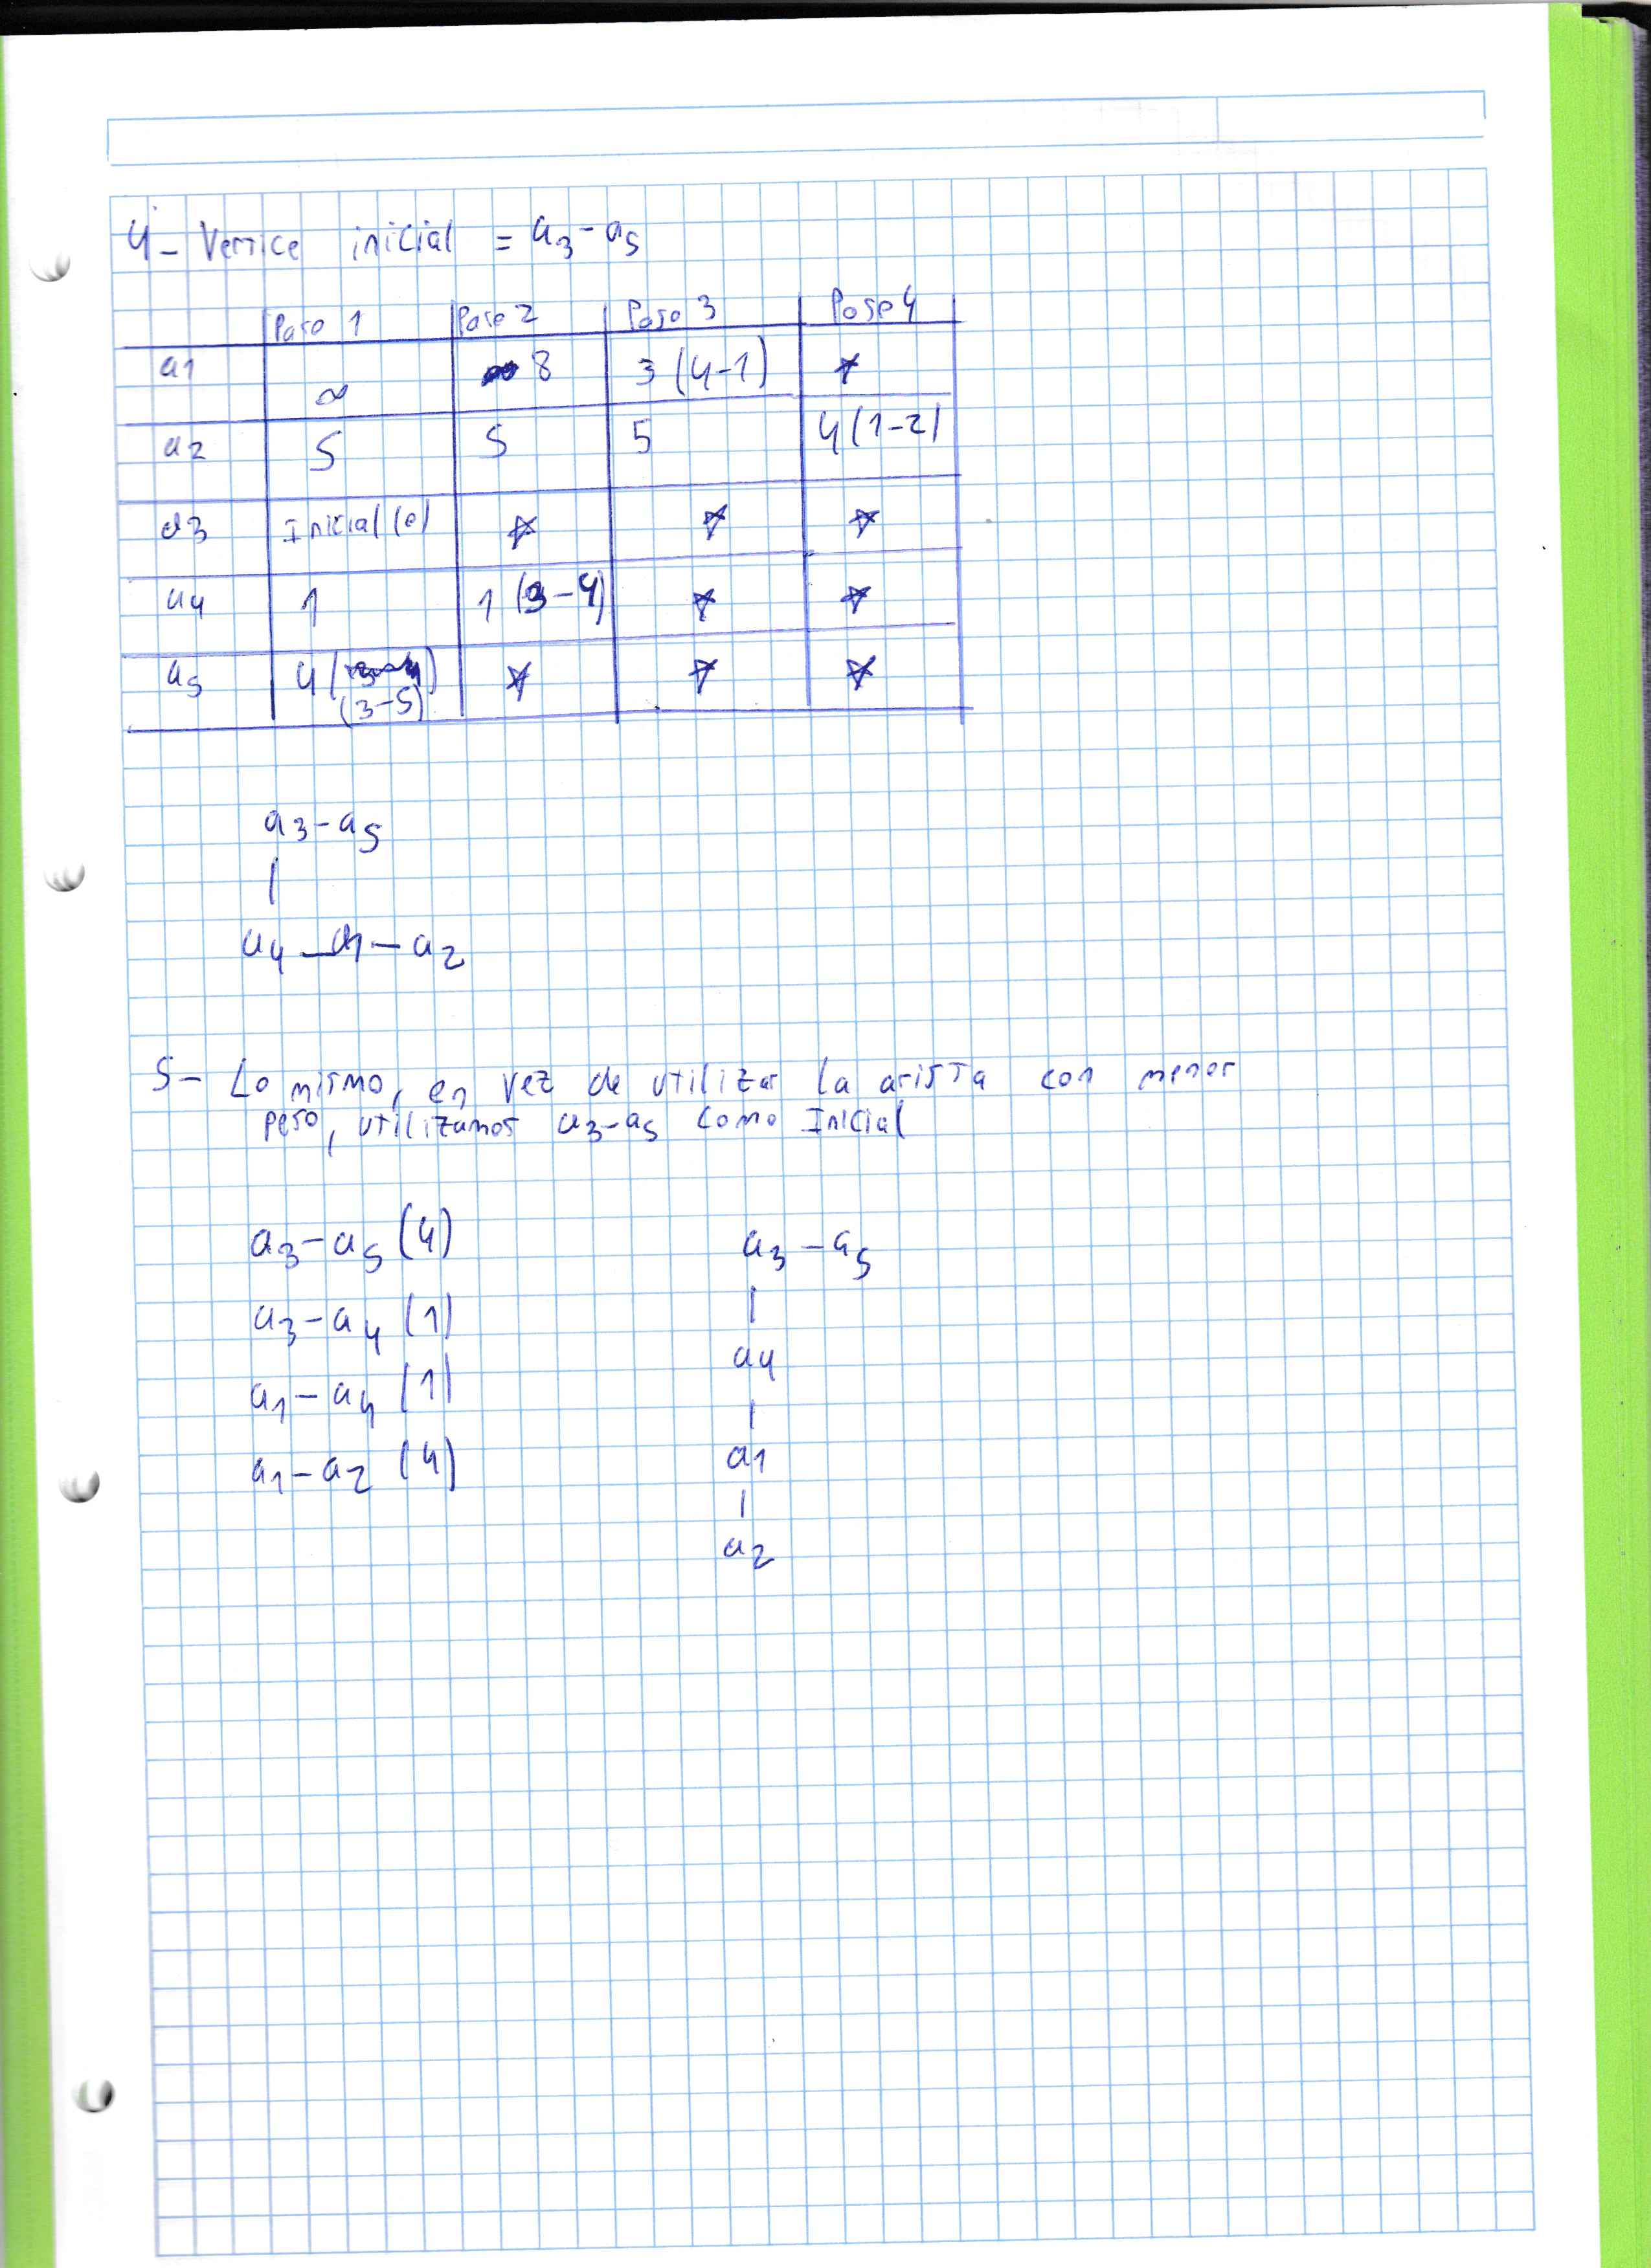 4- Vertice inicial = a3-a5
Paso 1 Paso 2 Paso 3 Paso 4
a1 ∞ 8 3 (4-1) *
a2 5 5 5 4 (1-2)
a3 Inicial (0) * * *
a4 1 1 (3-4) * *
a5 4 (3-5) * * *
a3-a5
|
a4-a1-a2
5- Lo mismo, en vez de utilizar la arista con menor
peso, utilizamos a3-a5 como Inicial
a3-a5 (4)
a3-a4 (1)
a1-a4 (1)
a1-a2 (4)
a3-a5
|
a4
|
a1
|
a2